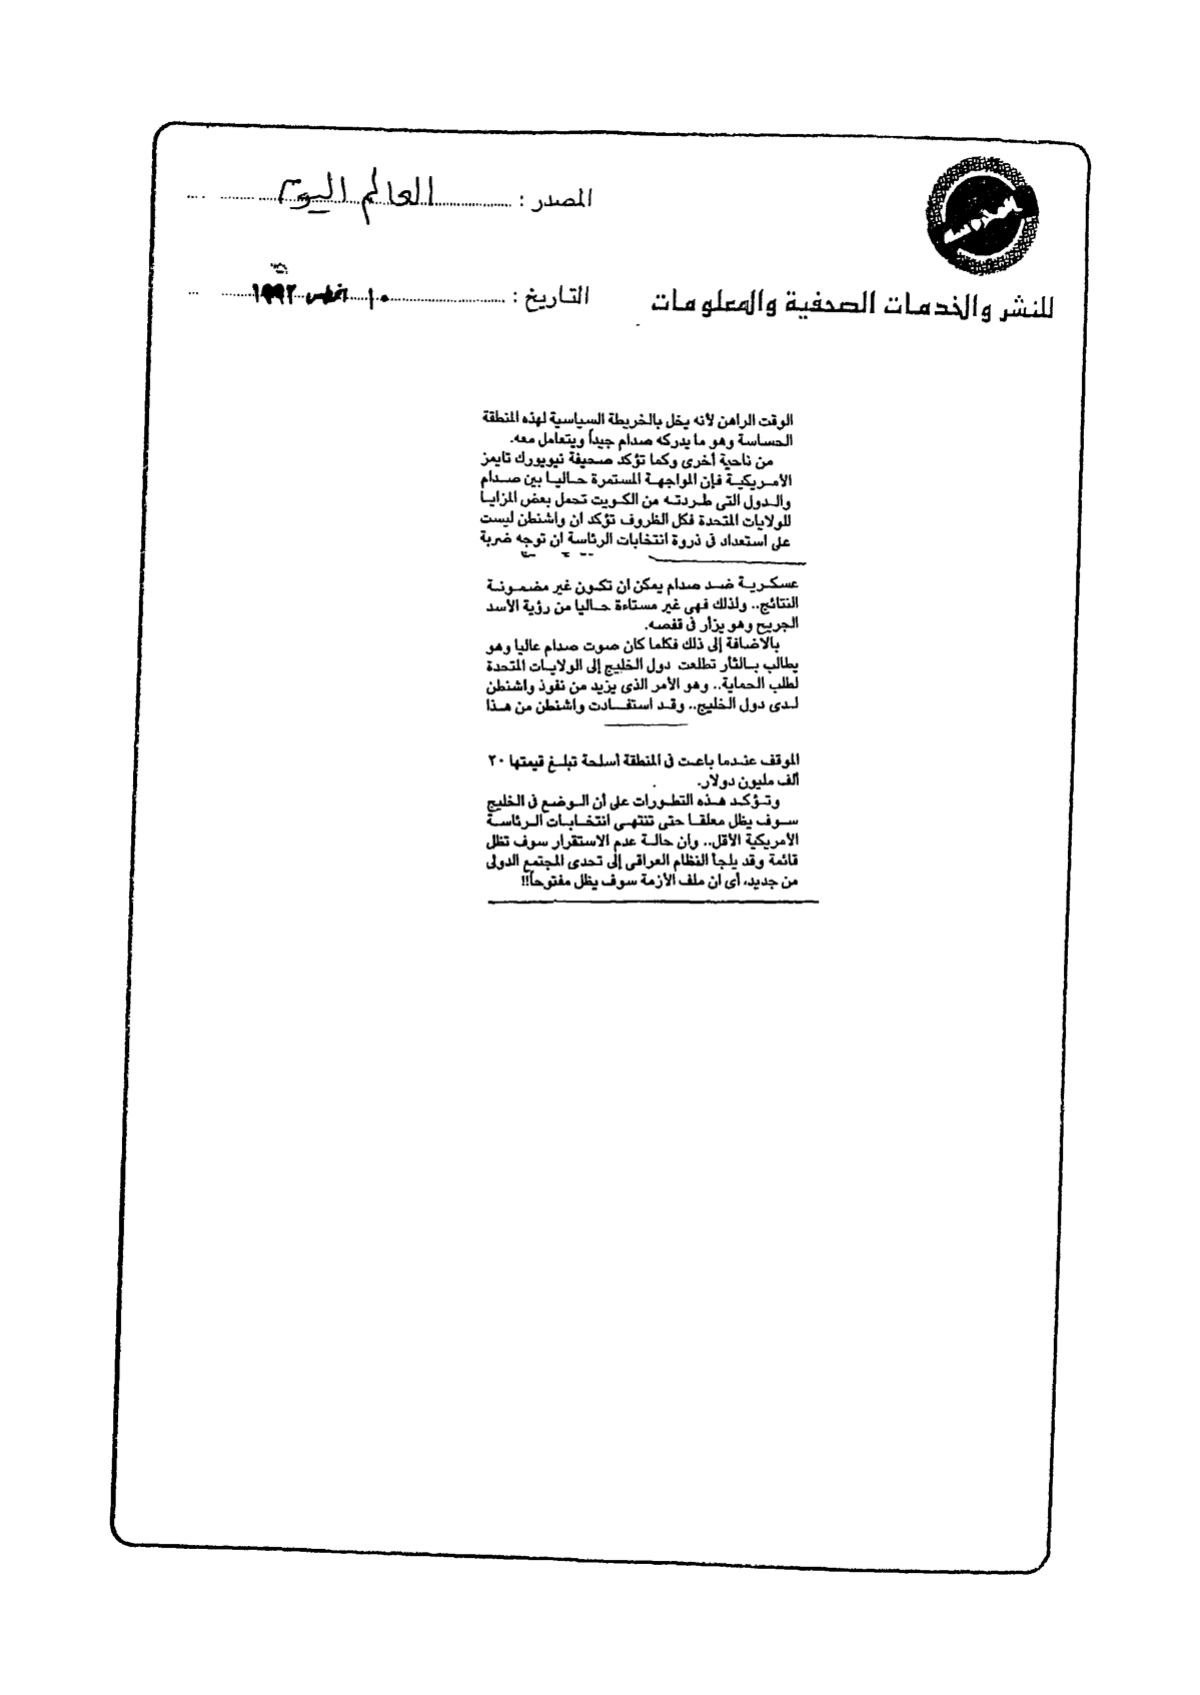 المصدر : العالم اليوم
للنشر والخدمات الصحفية والمعلومات
التاريخ : ١٠ اغسطس ١٩٩٢
الوقت الراهن لأنه يخل بالخريطة السياسية لهذه المنطقة
الحساسة وهو ما يدركه صدام جيداً ويتعامل معه.
من ناحية أخرى وكما تؤكد صحيفة نيويورك تايمز
الأمريكية فإن المواجهة المستمرة حاليا بين صدام
والدول التى طردته من الكويت تحمل بعض المزايا
للولايات المتحدة فكل الظروف تؤكد ان واشنطن ليست
على استعداد فى ذروة انتخابات الرئاسة ان توجه ضربة
عسكرية ضد صدام يمكن ان تكون غير مضمونة
النتائج.. ولذلك فهى غير مستاءة حاليا من رؤية الأسد
الجريح وهو يزأر فى قفصه.
بالاضافة إلى ذلك فكلما كان صوت صدام عاليا وهو
يطالب بالثأر تطلعت دول الخليج إلى الولايات المتحدة
لطلب الحماية.. وهو الأمر الذى يزيد من نفوذ واشنطن
لدى دول الخليج.. وقد استفادت واشنطن من هذا
الموقف عندما باعت فى المنطقة أسلحة تبلغ قيمتها ٢٠
ألف مليون دولار.
وتؤكد هذه التطورات على أن الوضع فى الخليج
سوف يظل معلقا حتى تنتهى انتخابات الرئاسة
الأمريكية الأقل.. وان حالة عدم الاستقرار سوف تظل
قائمة وقد يلجأ النظام العراقى إلى تحدى المجتمع الدولى
من جديد، أى ان ملف الأزمة سوف يظل مفتوحاً!!